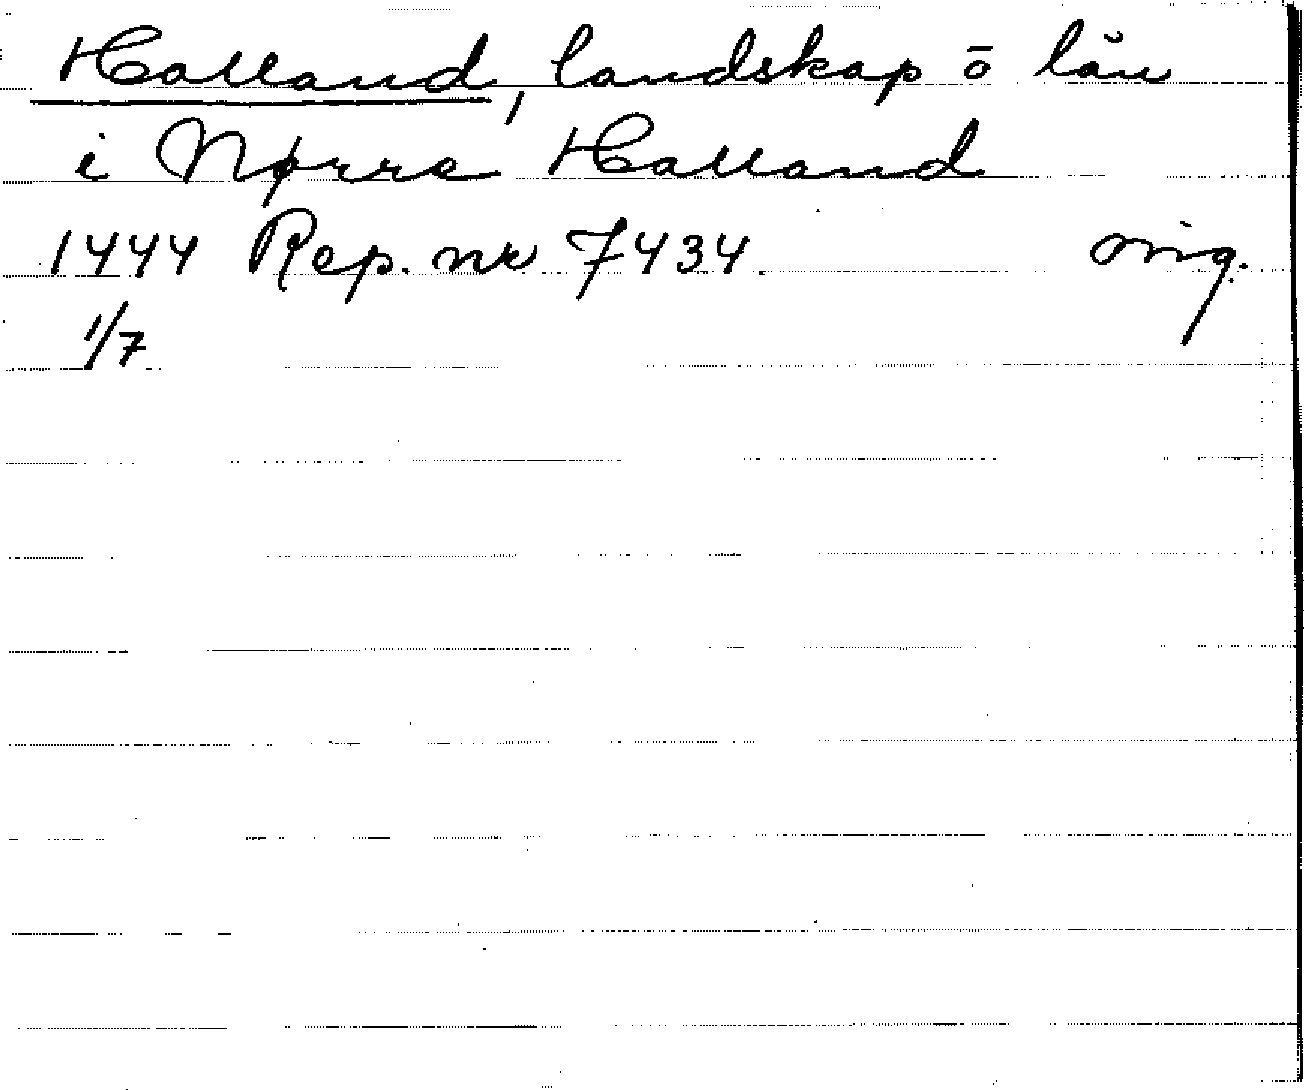 Halland, landskap ō län
i Nørre Halland
1444 Rep. nr 7434. orig.
1/7